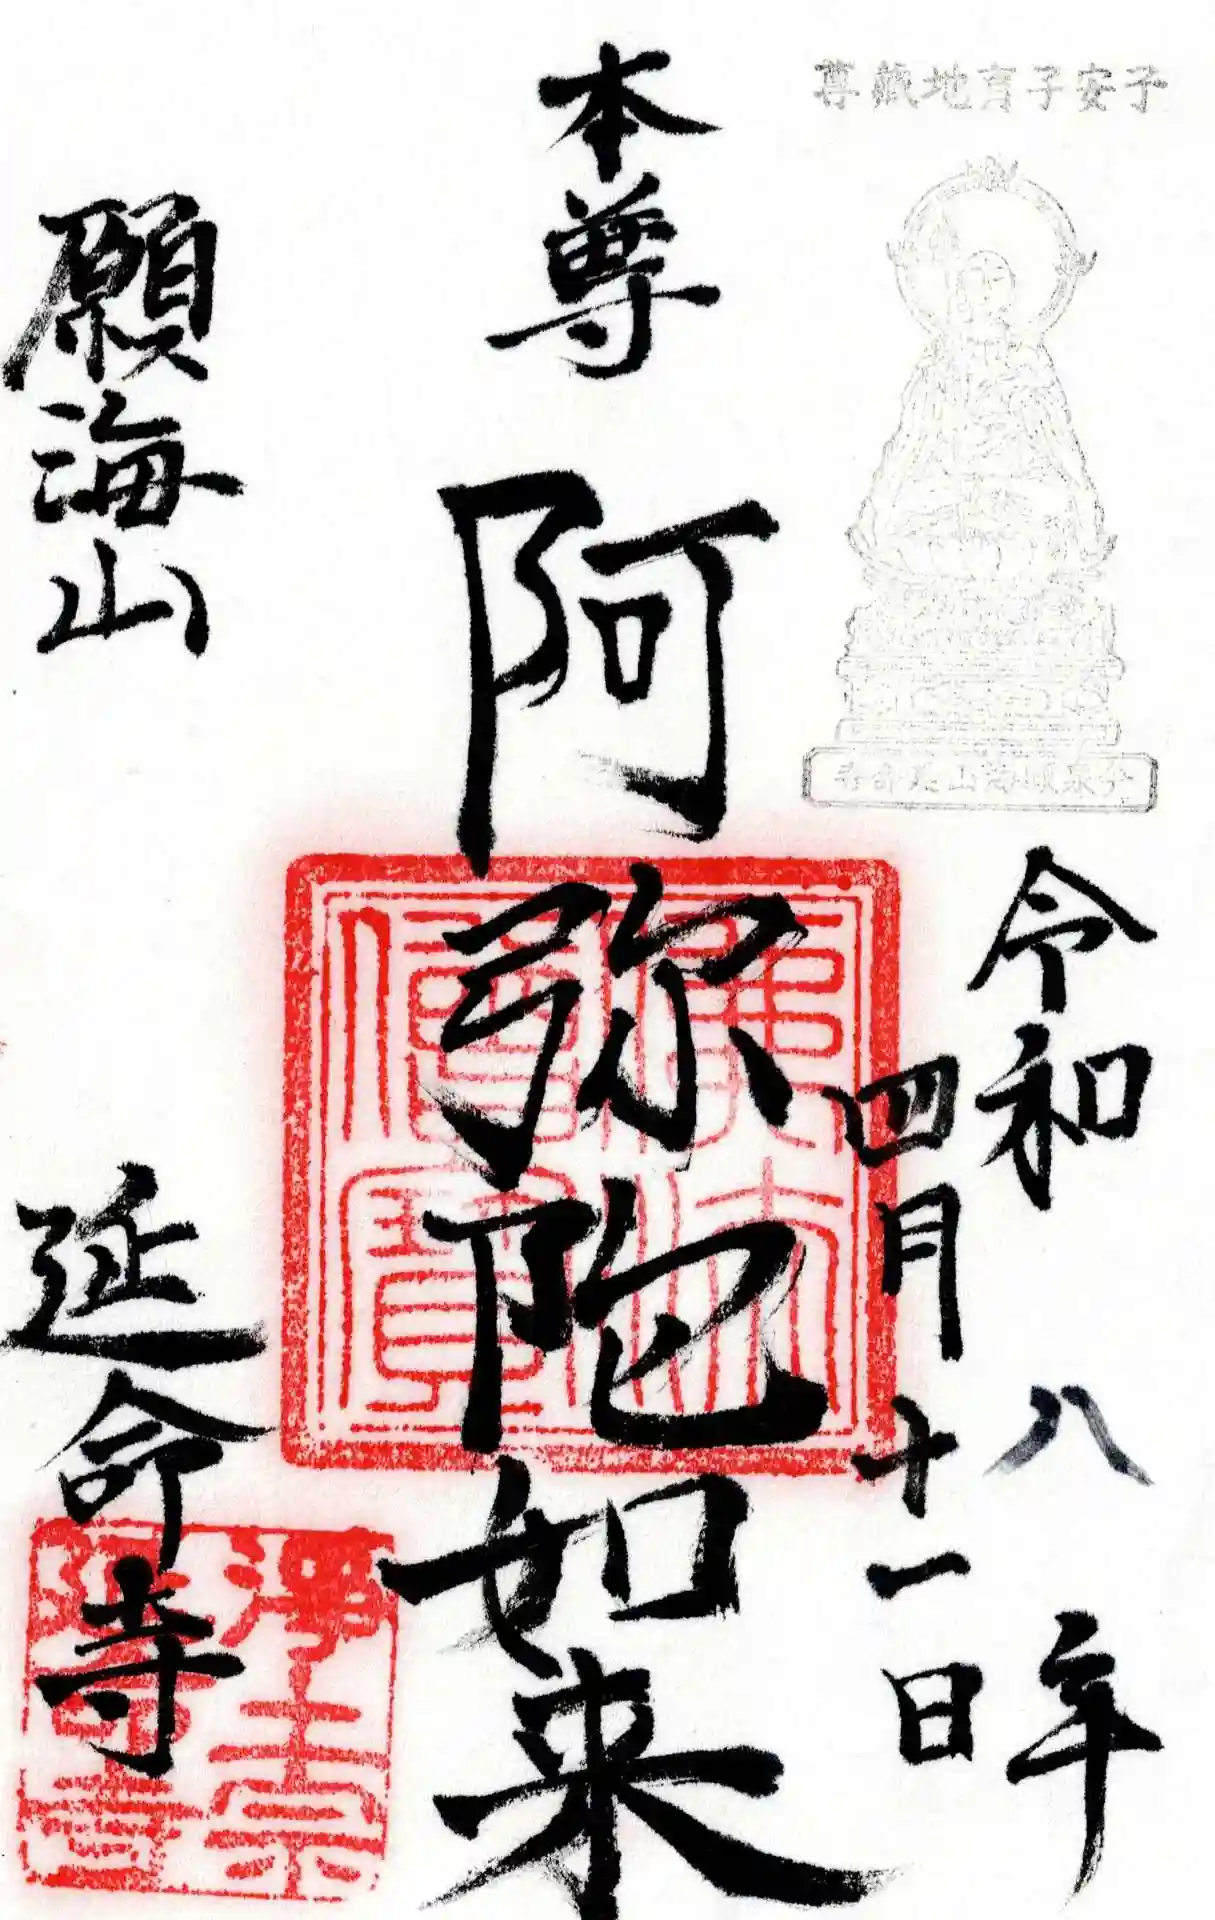 子安子育地蔵尊
今泉願海山延命寺
令和八年
四月十一日
本尊
阿弥陀如来
佛法
僧寶
願海山
延命寺
淨土宗